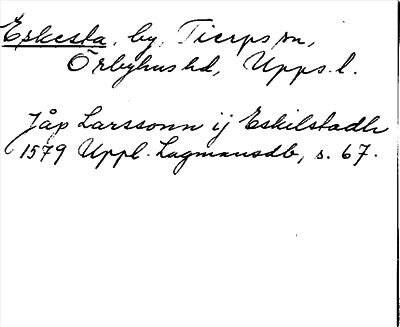 Eskesta, by, Tierps sn,
Örbyhus hd, Upps. l.
Jåp Larssonn ij Eskilstadh
1579 Uppl. Lagmansdb, s. 67.